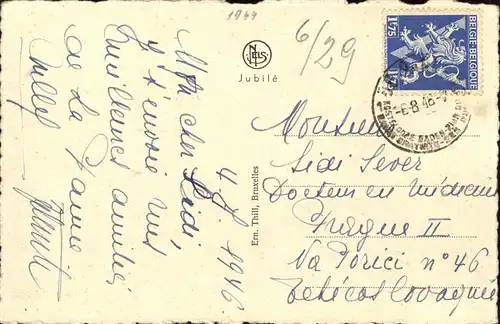 1944
6/29
NELS
Jubilé
BELGIE-BELGIQUE
1F75 1F75
-6.8.46-
4 1946
Mon cher Sidi,
J t'envoie mes
meilleures amitiés
de La Panne
Ern. Thill, Bruxelles
Monsieur
Sidi Sever
Docteur en Médecine
Prague II
Na Porici n° 46
Tchécoslovaquie